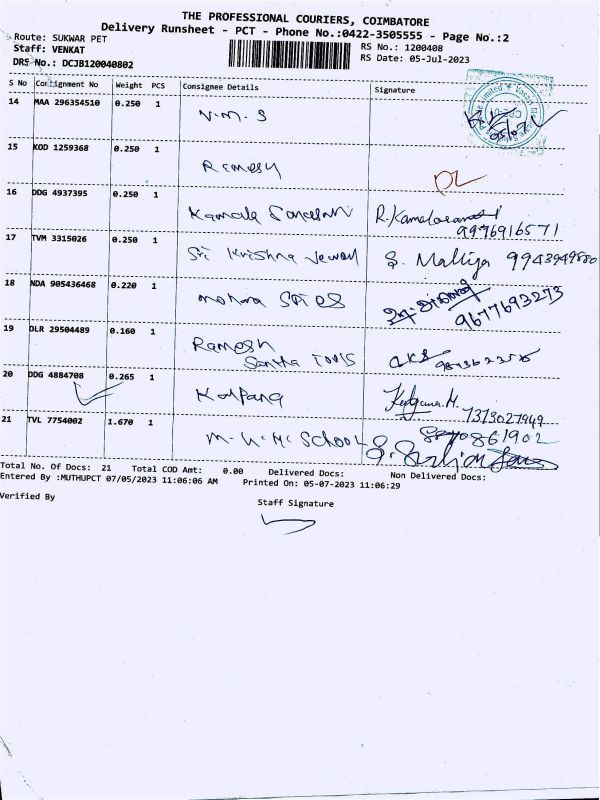 THE PROFESSIONAL COURIERS, COIMBATORE
Delivery Runsheet - PCT - Phone No.:0422-3505555 - Page No.:2
Route: SUKWAR PET
RS No.: 1200408
Staff: VENKAT
RS Date: 05-Jul-2023
DRS No.: DCJB120040802
S No Consignment No Weight PCS Consignee Details Signature
14 MAA 296354510 0.250 1 N.M.S
15 KOD 1259368 0.250 1 Ramesh
16 DDG 4937395 0.250 1 Kamala
9976916571
17 TVM 3315026 0.250 1 Sri Krishna Jewell S. Malliga 9943949880
18 NDA 905436468 0.220 1
9677693273
19 DLR 29504489 0.160 1 Ramesh
Santha Tools
20 DDG 4884708 0.265 1 Kalpana
7373027949
21 TVL 7754002 1.670 1 School
Total No. Of Docs: 21 Total COD Amt: 0.00 Delivered Docs: Non Delivered Docs:
Entered By :MUTHUPCT 07/05/2023 11:06:06 AM Printed On: 05-07-2023 11:06:29
Verified By
Staff Signature